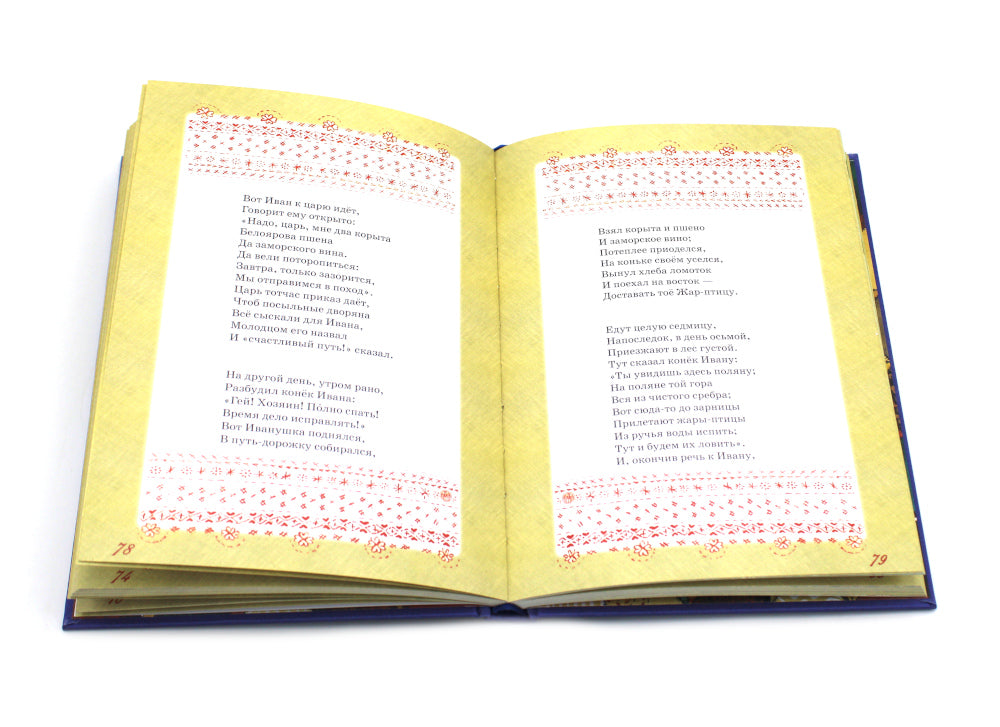 Вот Иван к царю идёт,
Говорит ему открыто:
«Надо, царь, мне два корыта
Белоярова пшена
Да заморского вина.
Да вели поторопиться:
Завтра, только зазорится,
Мы отправимся в поход».
Царь тотчас приказ даёт,
Чтоб посыльные дворяна
Всё сыскали для Ивана,
Молодцом его назвал
И «счастливый путь!» сказал.
На другой день, утром рано,
Разбудил конёк Ивана:
«Гей! Хозяин! Полно спать!
Время дело исправлять!»
Вот Иванушка поднялся,
В путь-дорожку собирался,
78
74
Взял корыта и пшено
И заморское вино;
Потеплее приоделся,
На коньке своём уселся,
Вынул хлеба ломоток
И поехал на восток —
Доставать тоё Жар-птицу.
Едут целую седмицу,
Напоследок, в день осьмой,
Приезжают в лес густой.
Тут сказал конёк Ивану:
«Ты увидишь здесь поляну;
На поляне той гора
Вся из чистого сребра;
Вот сюда-то до зарницы
Прилетают жары-птицы
Из ручья воды испить;
Тут и будем их ловить».
И, окончив речь к Ивану,
79